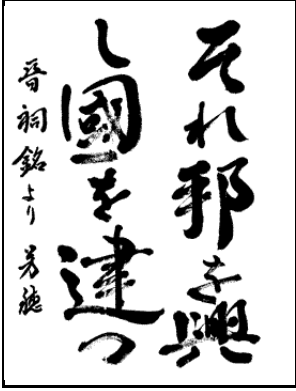 それ邦を興
し國を建つ
晋祠銘より 芳聴